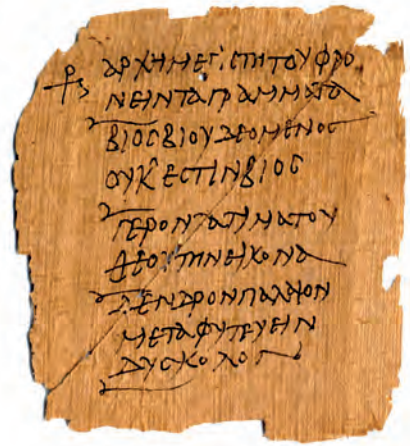 ⳨ ΑΡΧΗΜΕΓΙϹΤΗΤΟΥΦΡΟ
ΝΕΙΝΤΑΓΡΑΜΜΑΤΑ
ΒΙΟϹΒΙΟΥΔΕΟΜΕΝΟϹ
ΟΥΚ'ΕϹΤΙΝΒΙΟϹ
ΓΕΡΟΝΤΑΤΙΜΑΤΟΥ
ΘΕΟΥΤΗΝΕΙΚΟΝΑ
ΔΕΝΔΡΟΝΠΑΛΑΙΟΝ
ΜΕΤΑΦΥΤΕΥΕΙΝ
ΔΥϹΚΟΛΟΝ